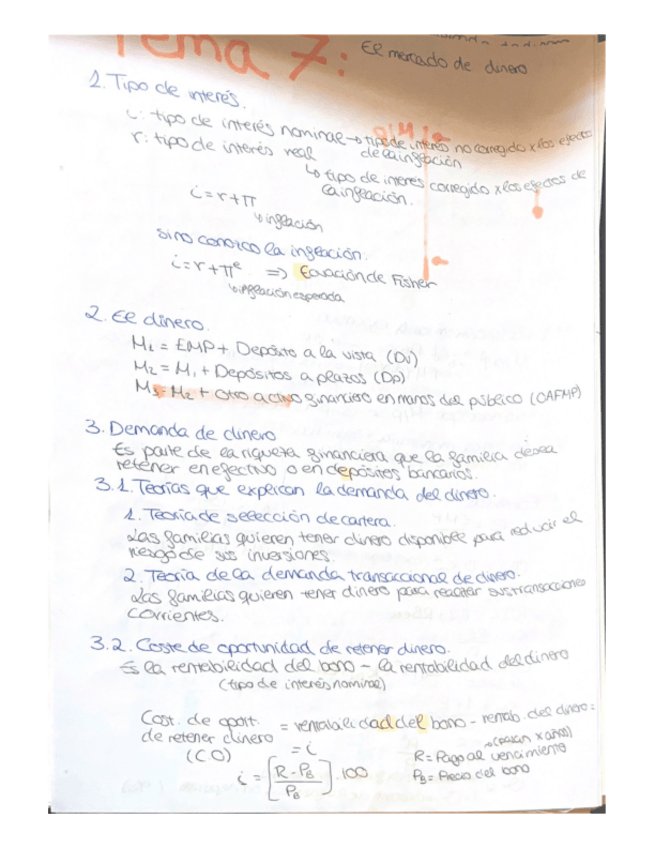 Tema 7: El mercado de dinero
1. Tipo de interés.
i: tipo de interés nominal → tipo de interés no corregido x los efectos
de la inflación
r: tipo de interés real
↳ tipo de interés corregido x los efectos de
la inflación.
i = r + π
↳ inflación
si no conozco la inflación:
i = r + πᵉ ⇒ Ecuación de Fisher
↳ inflación esperada
2. El dinero.
M₁ = EMP + Depósito a la vista (DV)
M₂ = M₁ + Depósitos a plazos (Dp)
M₃ = M₂ + Otro activo financiero en manos del público (OAFMP)
3. Demanda de dinero
Es parte de la riqueza financiera que la familia desea
retener en efectivo o en depósitos bancarios.
3.1. Teorías que explican la demanda del dinero.
1. Teoría de selección de cartera.
Las familias quieren tener dinero disponible para reducir el
riesgo de sus inversiones.
2. Teoría de la demanda transaccional de dinero.
Las familias quieren tener dinero para realizar sus transacciones
corrientes.
3.2. Coste de oportunidad de retener dinero.
Es la rentabilidad del bono - la rentabilidad del dinero
(tipo de interés nominal)
Cost. de oport. = rentabilidad del bono - rentab. del dinero =
de retener dinero = i
(CO)
R = Pago al vencimiento
P_B = Precio del bono
i = [R - P_B / P_B] · 100